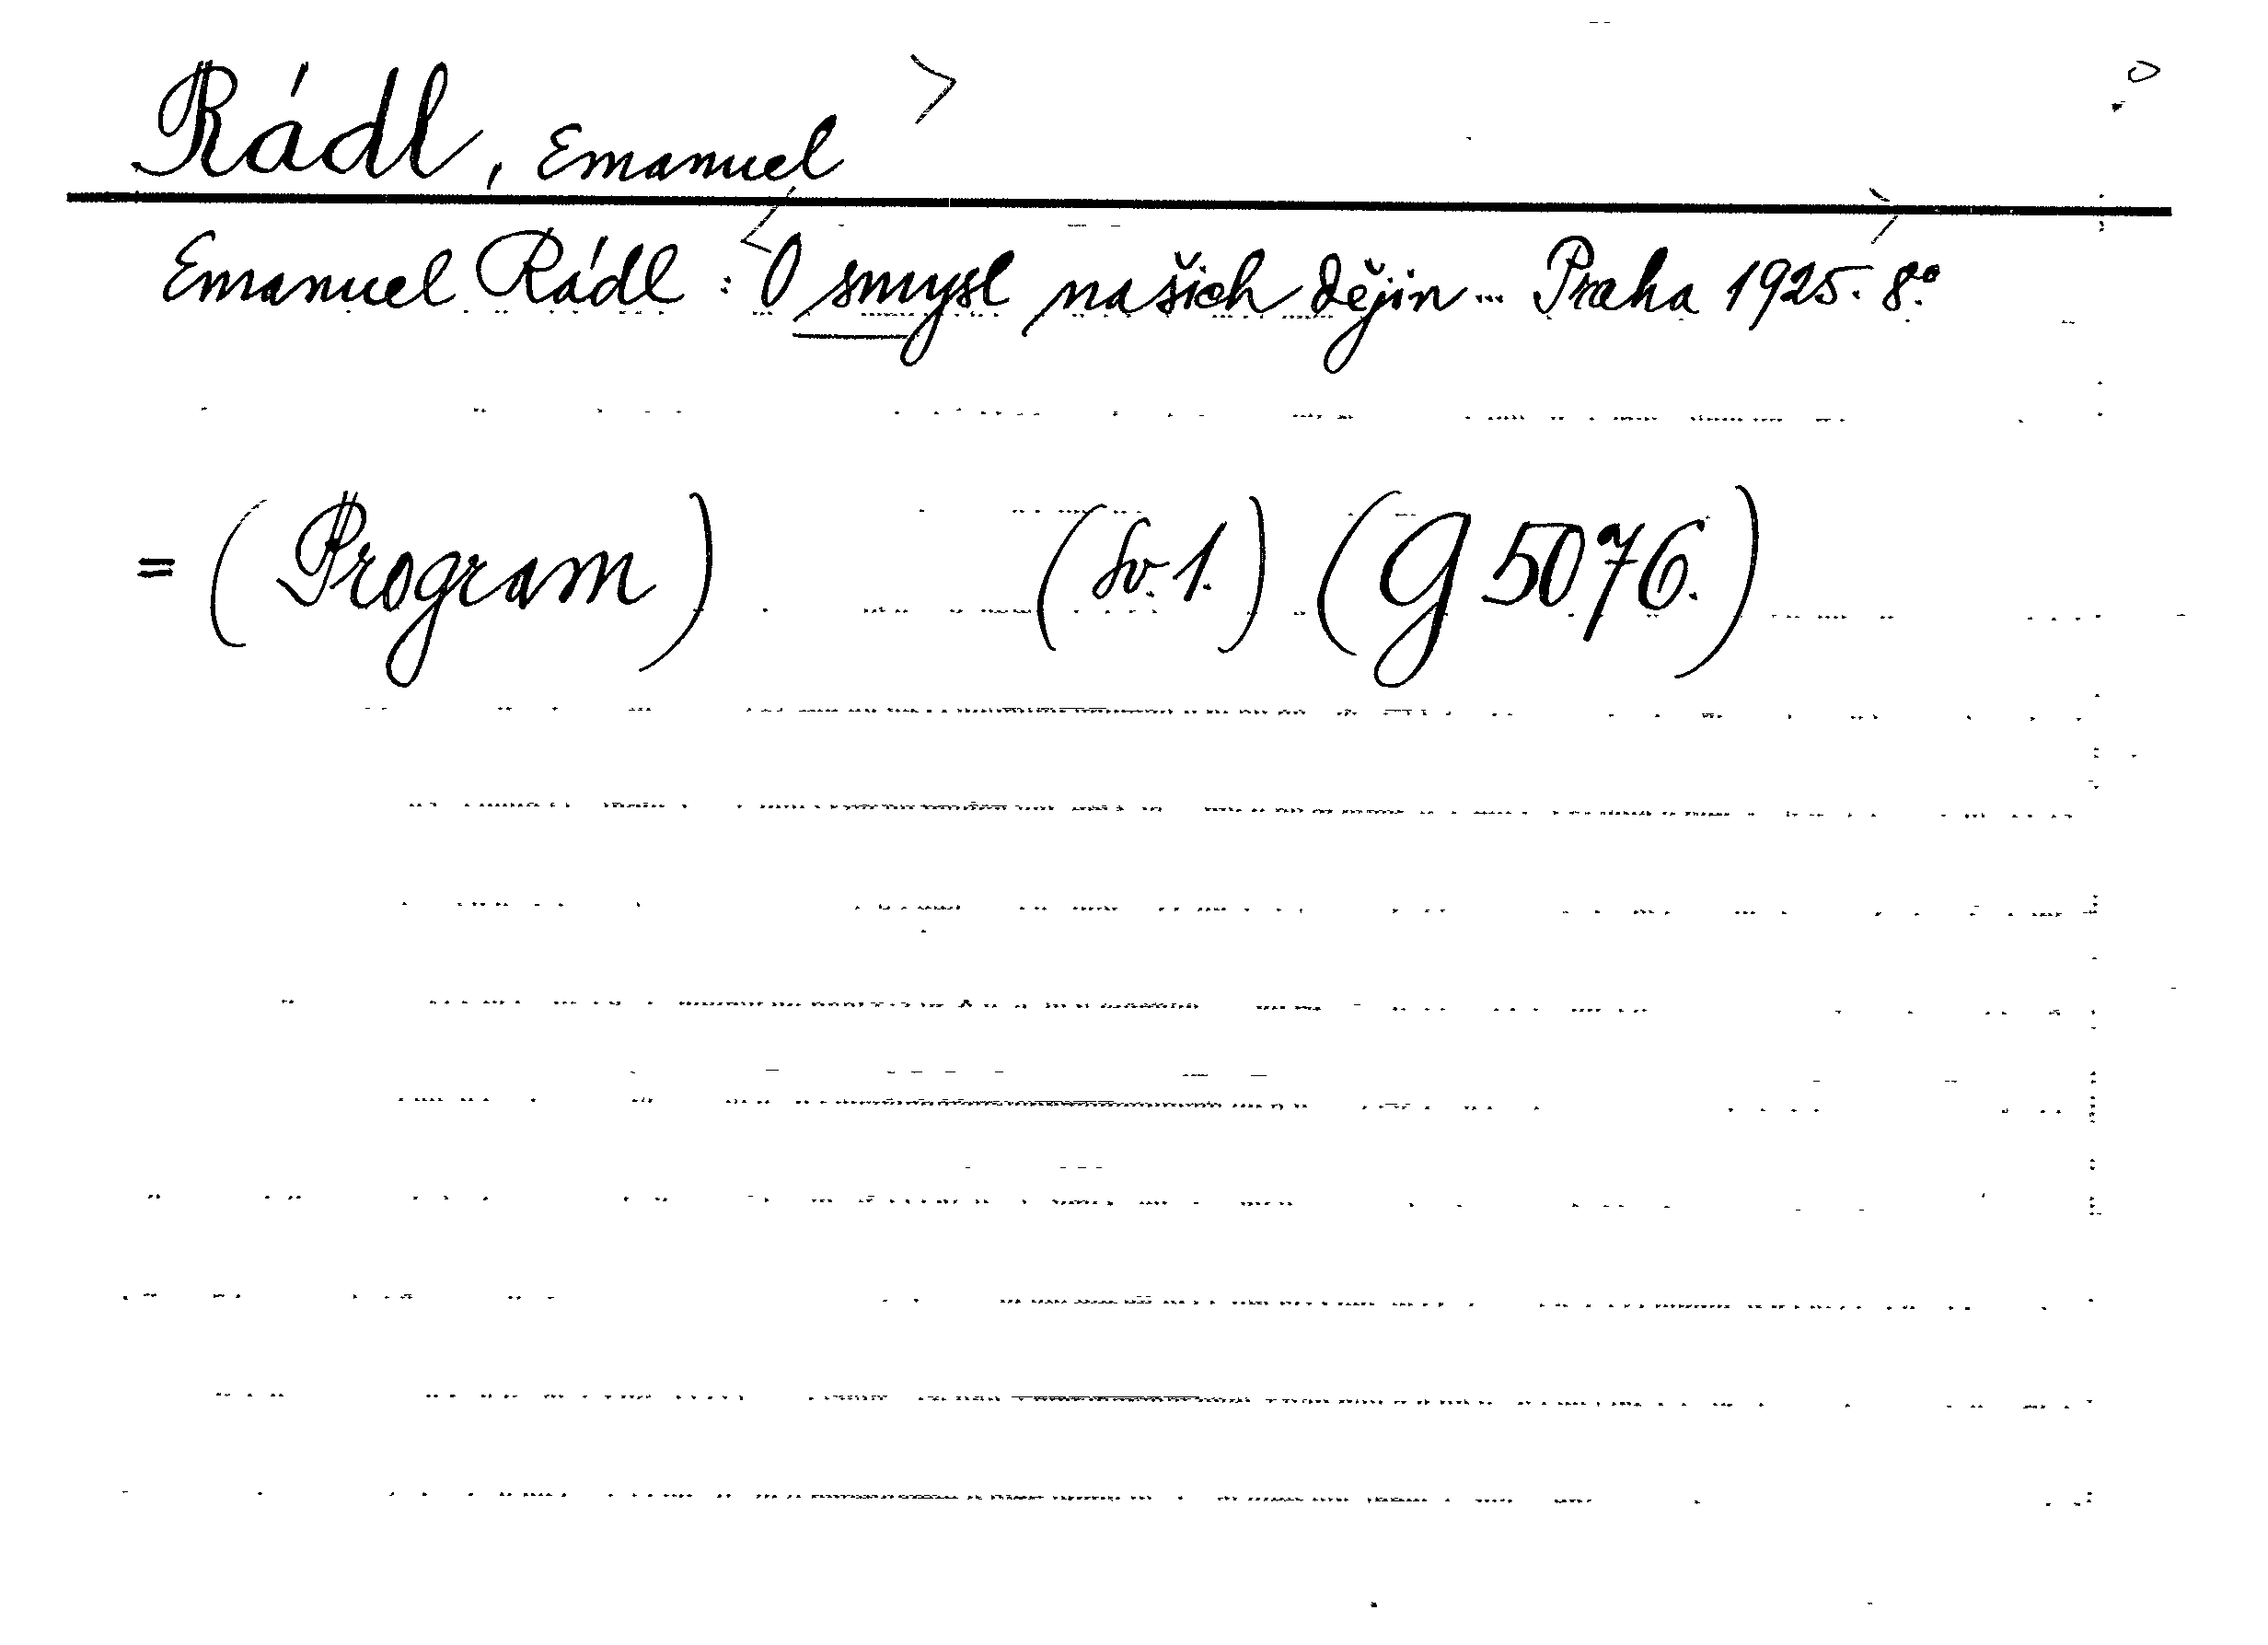 Rádl, Emanuel
Emanuel Rádl: O smysl našich dějin... Praha 1925. 8.º
= (Program) (Sv. 1.) (G 5076.)